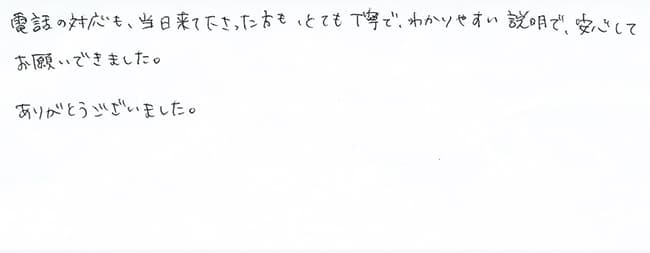 電話の対応も、当日来て下さった方も、とても丁寧で、わかりやすい説明で、安心して
お願いできました。
ありがとうございました。